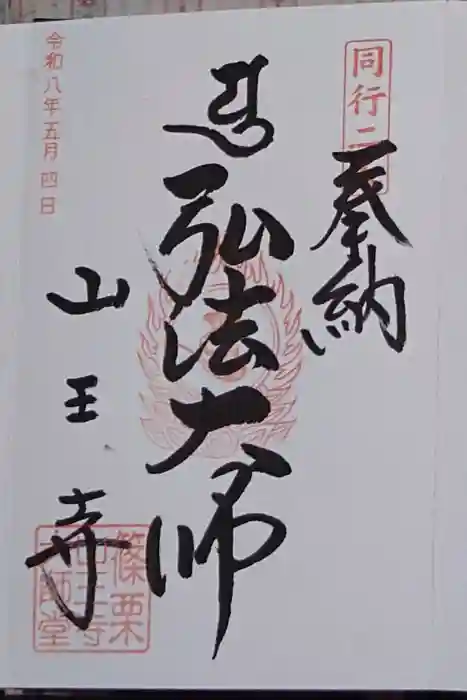 同行二
奉納
弘法大師
山王寺
令和八年五月四日
篠栗
山王寺
大師堂